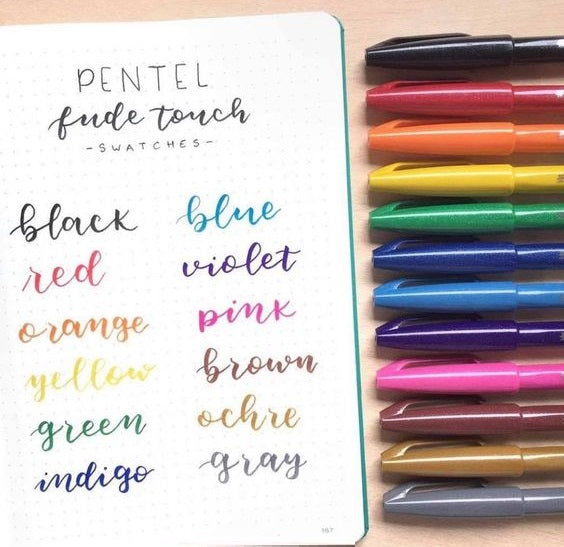 PENTEL
fude touch
-SWATCHES-
black
red
orange
yellow
green
indigo
blue
violet
pink
brown
ochre
gray
167